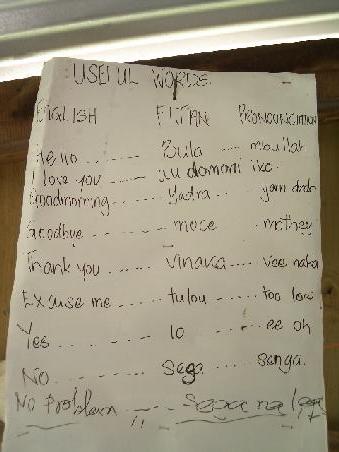 USEFUL WORDS
ENGLISH FIJIAN PRONOUNCIATION
Hello ....... Bula ..... mbulah
I love you ...... au domoni iko
Goodmorning ..... Yadra ..... yan drah
Goodbye ........ moce mothey
Thank you ...... vinaka ..... vee naka
Excuse me ...... tulou ...... too low
Yes ...... Io ...... ee oh
No ...... Sega ..... senga.
No Problem ...... sega na leqa